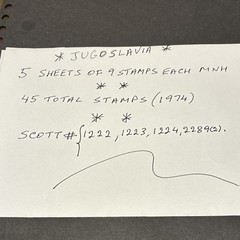 * JUGOSLAVIA *
5 SHEETS OF 9 STAMPS EACH MNH
* *
45 TOTAL STAMPS (1974)
* *
SCOTT # {1222, 1223, 1224, 2289(2).